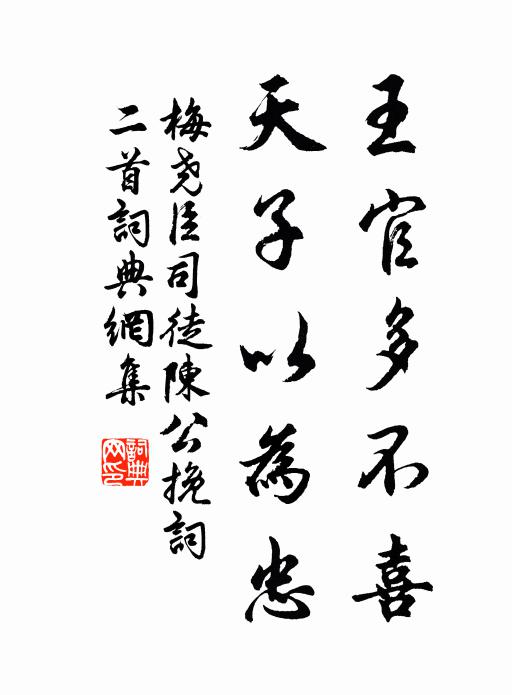 王官多不喜
天子以為忠
梅尧臣司徒陳公挽詞
二首詞典網集
詞典网印